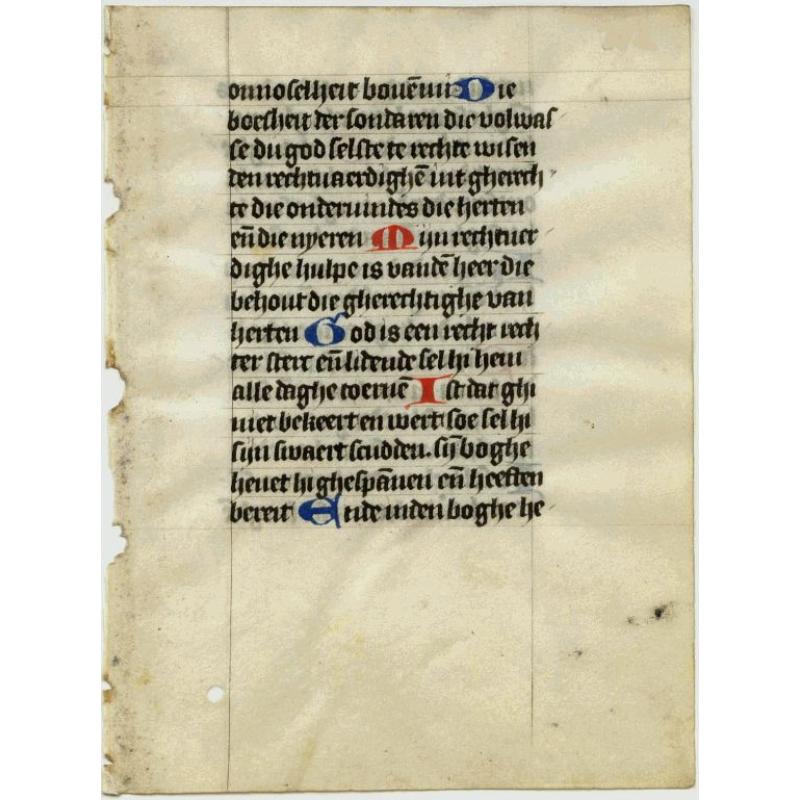 onnoselheit bouē mi Die
boesheit der sondaren die volwas
se du god selste te rechte wisen
den rechtuaerdighē uut gherech
te die onderuindes die herten
eñ die nyeren Mijn rechtuer
dighe hulpe is vandē heer die
behout die gherechtighe van
herten God is een recht rech
ter sterc eñ lidende sel hi hem
alle daghe toernē Ist dat ghi
niet bekeert en wert soe sel hi
sijn swaert scudden. sij̄ boghe
heuet hi ghespānen eñ heeften
bereit Ende inden boghe he